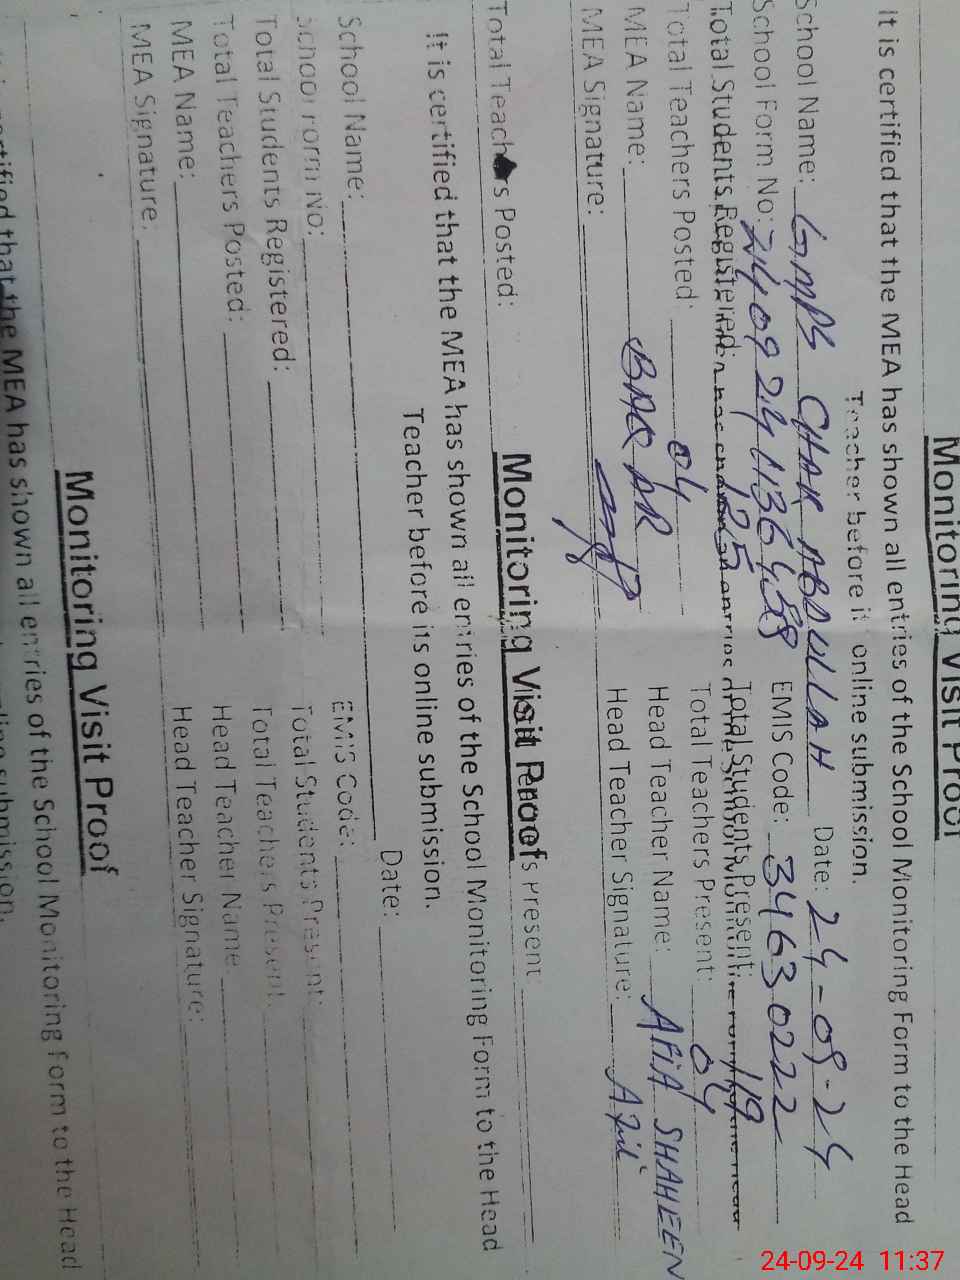 Monitoring Visit Proof
It is certified that the MEA has shown all entries of the School Monitoring Form to the Head
Teacher before it online submission.
School Name: GMPS CHAK ABDULLAH Date: 24-09-24
School Form No: EMIS Code: 34630222
Total Students Registered: 125 Total Students Present: 119
Total Teachers Posted: 04 Total Teachers Present: 04
MEA Name: Head Teacher Name: AFIA SHAHEEN
MEA Signature: Head Teacher Signature:
Monitoring Visit Proof
Total Teachers Posted: s Present:
It is certified that the MEA has shown all entries of the School Monitoring Form to the Head
Teacher before its online submission.
School Name: Date:
School Form No: EMIS Code:
Total Students Registered: Total Students Present:
Total Teachers Posted: Total Teachers Present:
MEA Name: Head Teacher Name
MEA Signature: Head Teacher Signature:
Monitoring Visit Proof
certified that the MEA has shown all entries of the School Monitoring Form to the Head
online submission.
24-09-24 11:37